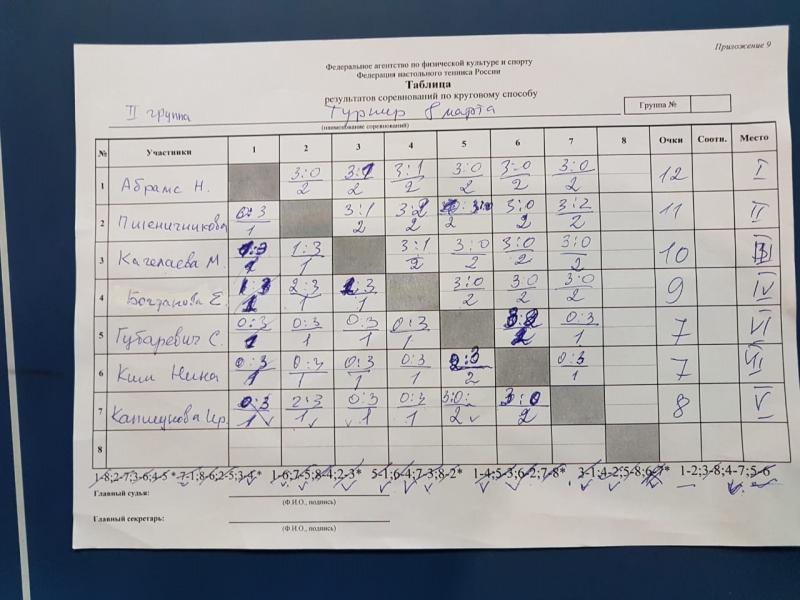 Приложение 9
Федеральное агентство по физической культуре и спорту
Федерация настольного тенниса России
Таблица
результатов соревнований по круговому способу
II группа Турнир 8 марта
(наименование соревнований)
Группа №
№ Участники 1 2 3 4 5 6 7 8 Очки Соотн. Место
1 Абрамс Н. 3:0 3:1 3:1 3:0 3:0 3:0 12 I
2 2 2 2 2 2
2 Пшеничникова 0:3 3:1 3:2 3:0 3:0 3:2 11 II
1 2 2 2 2 2
3 Кагелаева М. 1:3 1:3 3:1 3:0 3:0 3:0 10 III
1 1 2 2 2 2
4 Богданова Е. 1:3 2:3 1:3 3:0 3:0 3:0 9 IV
1 1 1 2 2 2
5 Губаревич С. 0:3 0:3 0:3 0:3 3:2 0:3 7 VI
1 1 1 1 2 1
6 Ким Нина 0:3 0:3 0:3 0:3 2:3 0:3 7 VII
1 1 1 1 2 1
7 0:3 2:3 0:3 0:3 3:0 3:0 8 V
1 1 1 1 2 2
8
1-8;2-7;3-6;4-5* 7-1;8-6;2-5;3-4* 1-6;7-5;8-4;2-3* 5-1;6-4;7-3;8-2* 1-4;5-3;6-2;7-8* 3-1;4-2;5-8;6-7* 1-2;3-8;4-7;5-6
Главный судья:
(Ф.И.О., подпись)
Главный секретарь:
(Ф.И.О., подпись)